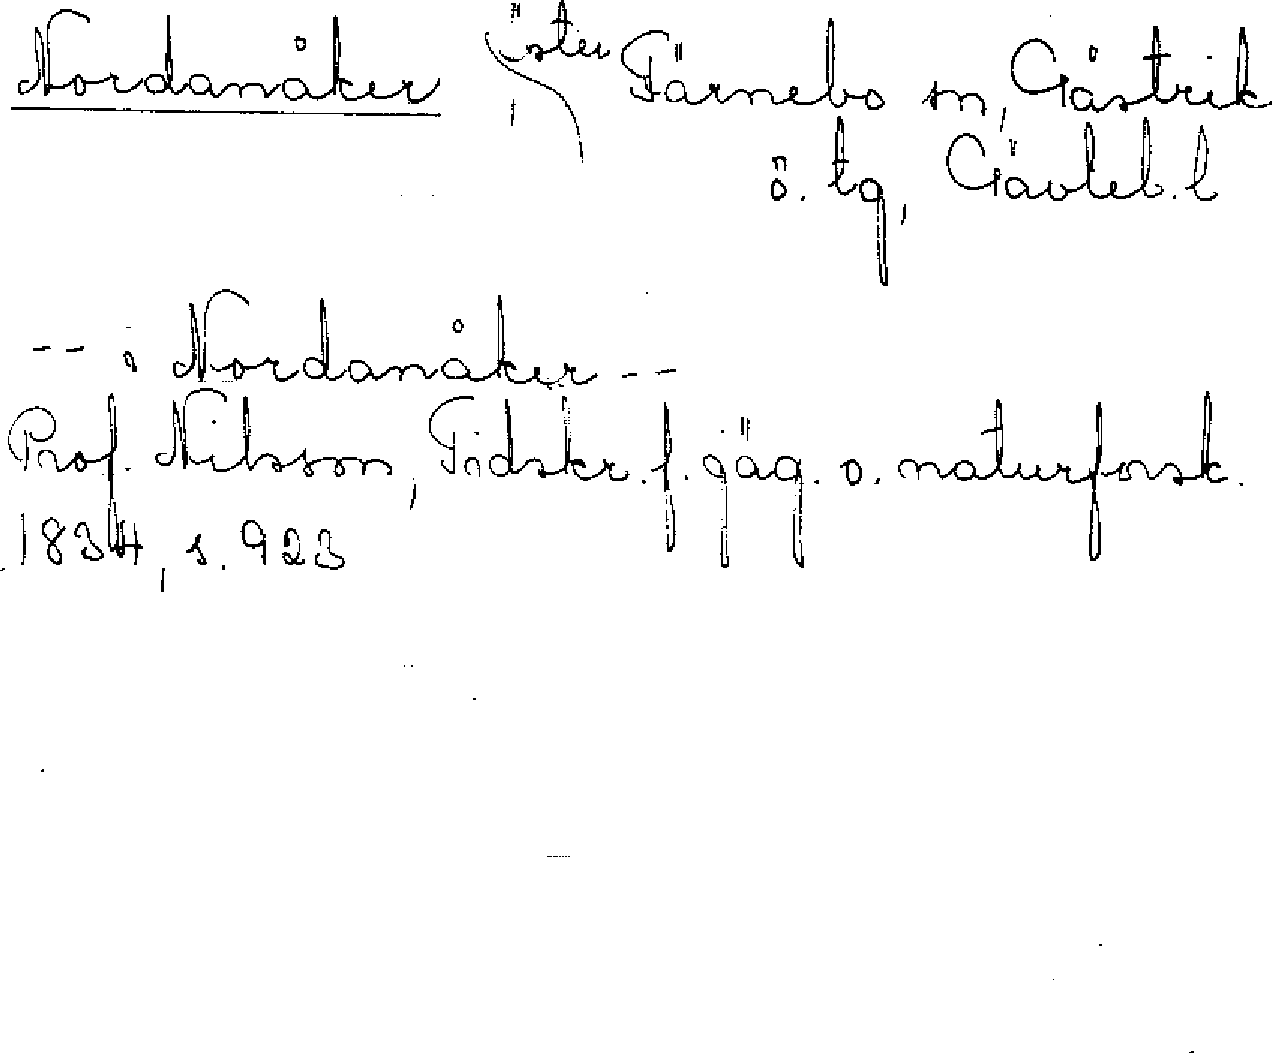 Nordanåker Öster Färnebo sn, Gästrik
ö. tg, Gävleb. l
-- i Nordanåker --
Prof. Nilsson, Tidskr. f. jäg. o. naturforsk.
1834, s. 923